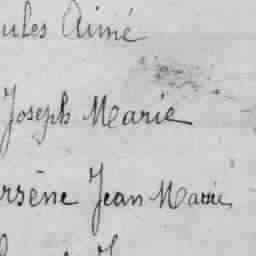 ules Aimé
Joseph Marie
rsène Jean Marie